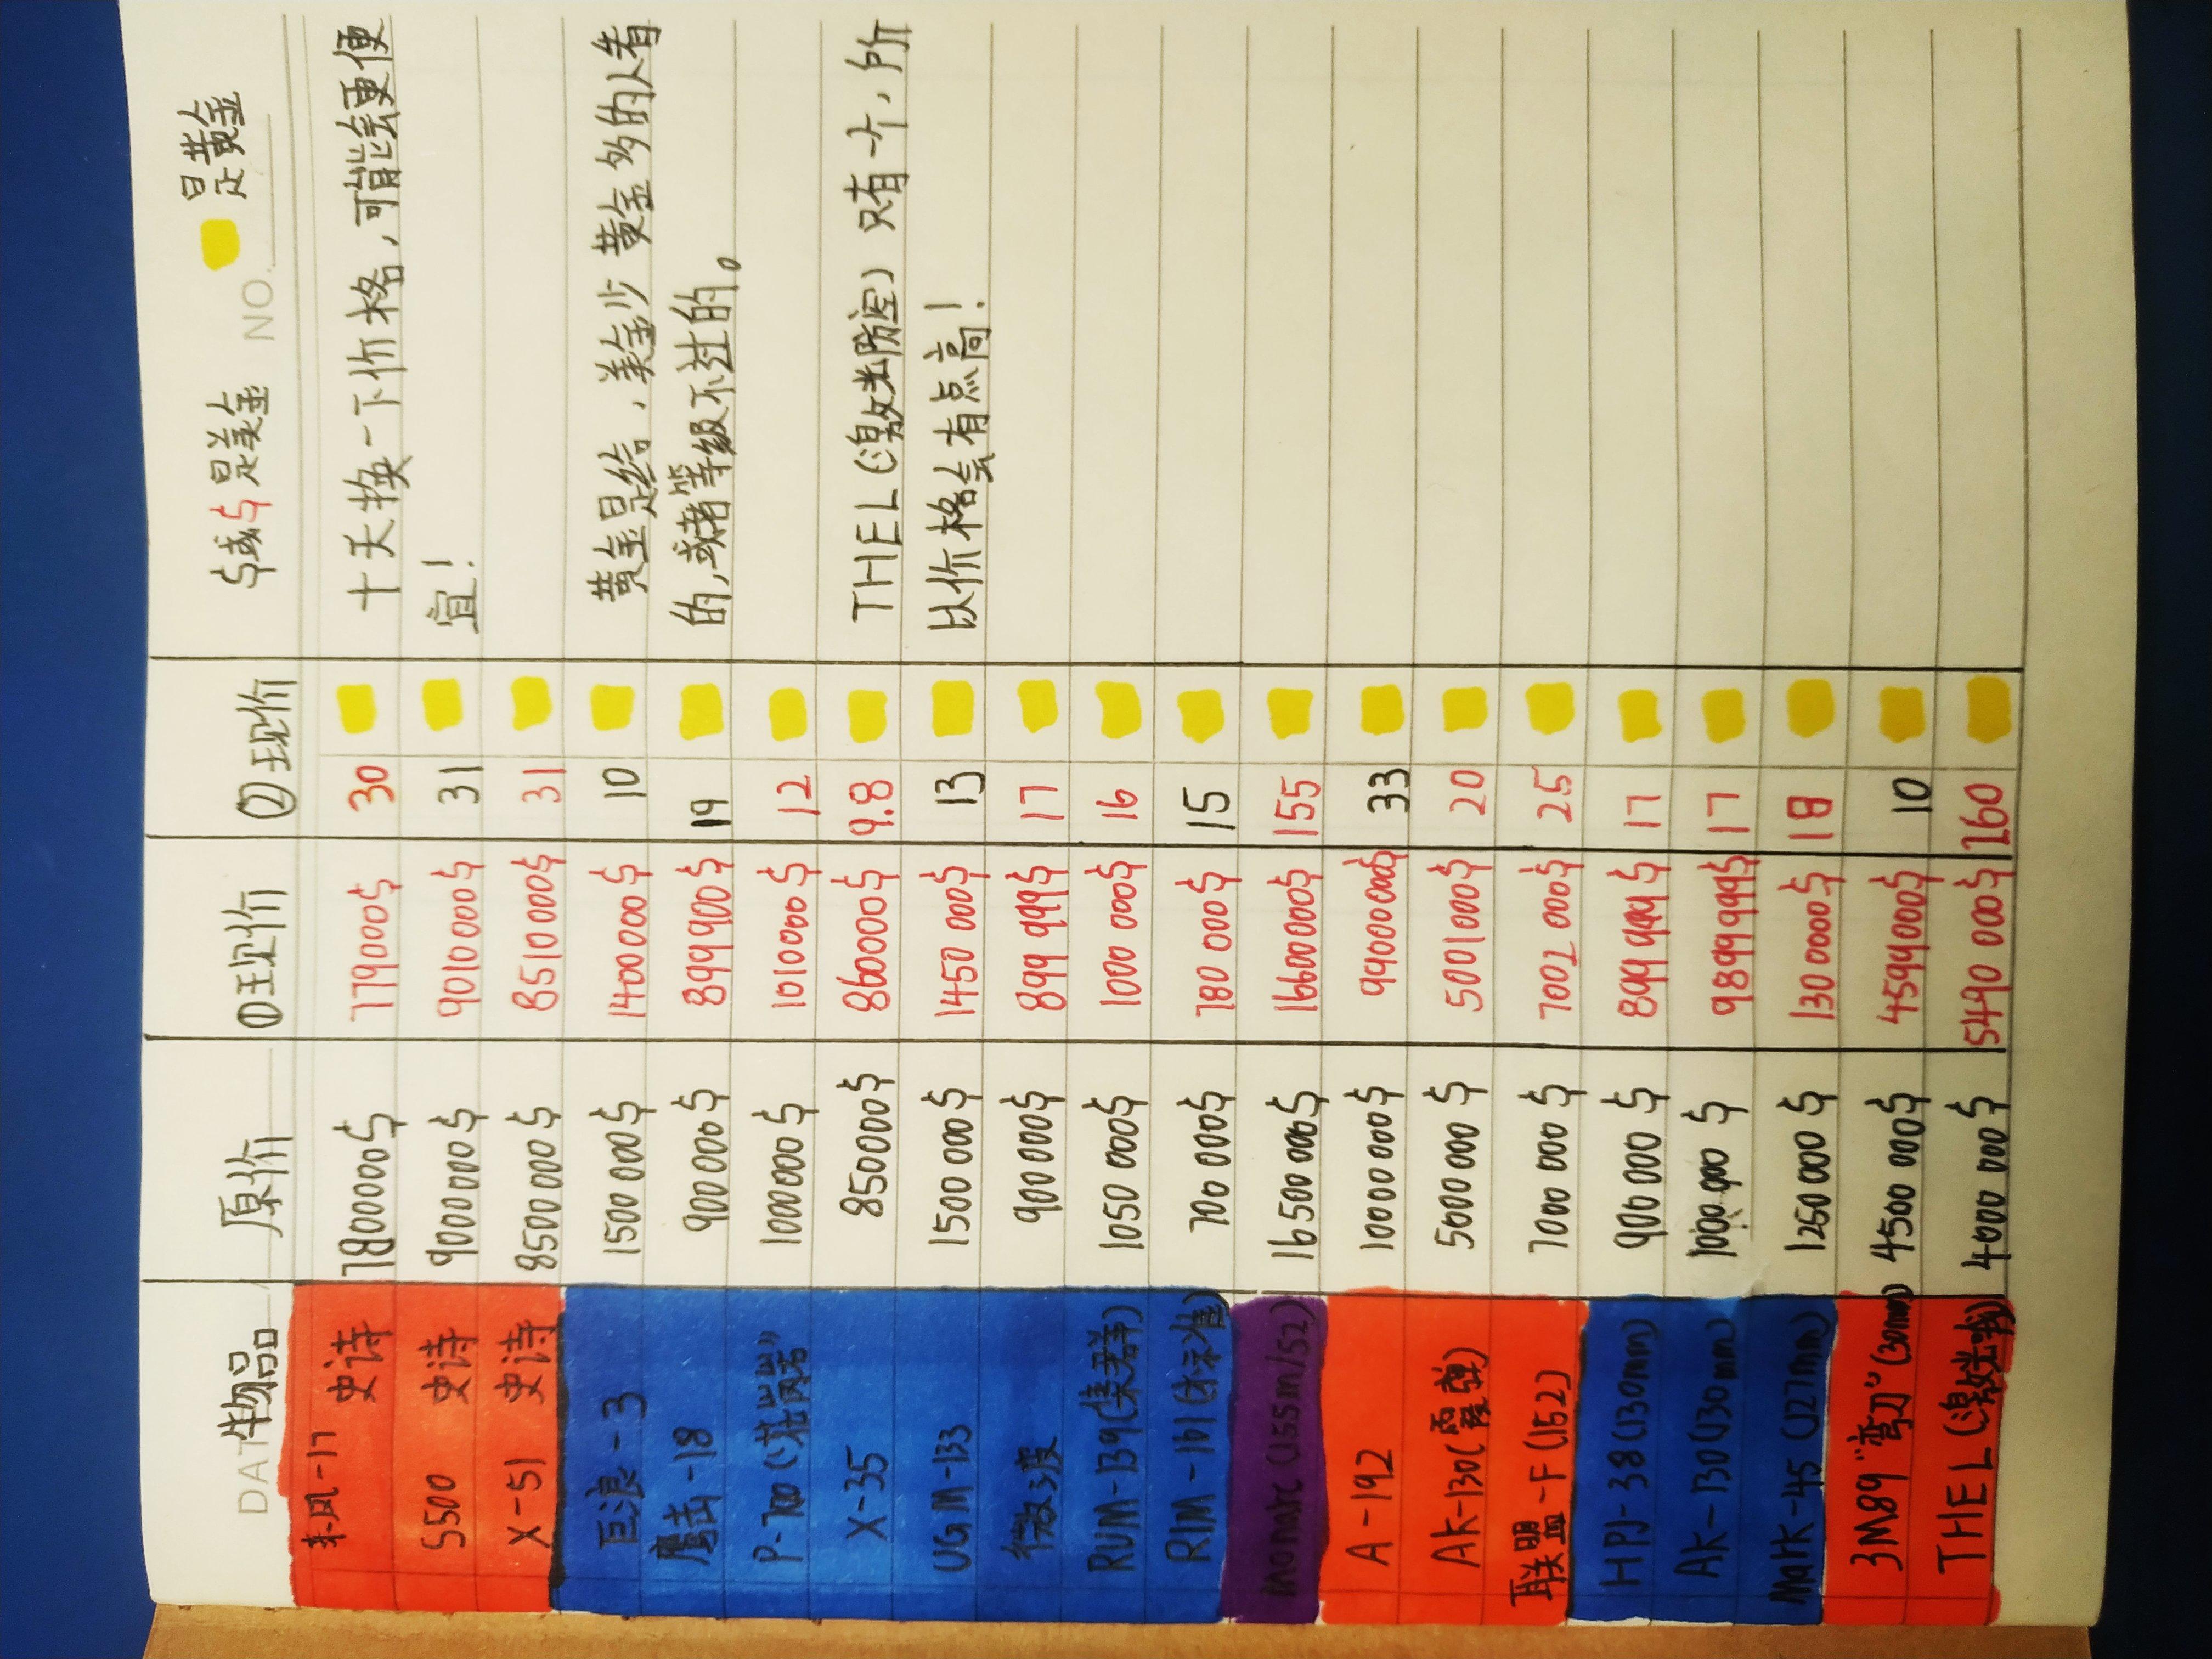 DAT NO.
$或$是美金 是黄金
物品 原价 ①现价 ②现价
东风-17 史诗 7800000$ 7790000$ 30
S500 史诗 9000000$ 9010000$ 31
X-51 史诗 8500000$ 8510000$ 31
巨浪-3 1500000$ 1400000$ 10
鹰击-18 900000$ 899900$ 19
P-700(花岗岩" 1000000$ 1010000$ 12
X-35 850000$ 860000$ 9.8
UGM-133 1500000$ 1450000$ 13
900000$ 899999$ 17
RUM-139(集群) 1050000$ 1000000$ 16
RIM-161(标准) 700000$ 780000$ 15
monarc (155m/52) 16500000$ 16600000$ 155
A-192 10000000$ 9900000$ 33
AK-130(霰弹) 5000000$ 5001000$ 20
联盟-F(152) 7000000$ 7002000$ 25
HPJ-38(130mm) 900000$ 899999$ 17
AK-130(130mm) 1000000$ 989999$ 17
Mark-45 (127mm) 1250000$ 1300000$ 18
3M89"弯刀"(30mm) 4500000$ 4599000$ 10
THEL(激光 4000000$ 5490000$ 160
十天换一下价格,可能会更便
宜!
黄金是给,美金少 黄金多的人看
的,或者等级不过的。
THEL(激光防空) 只有一个,所
以价格会有点高!